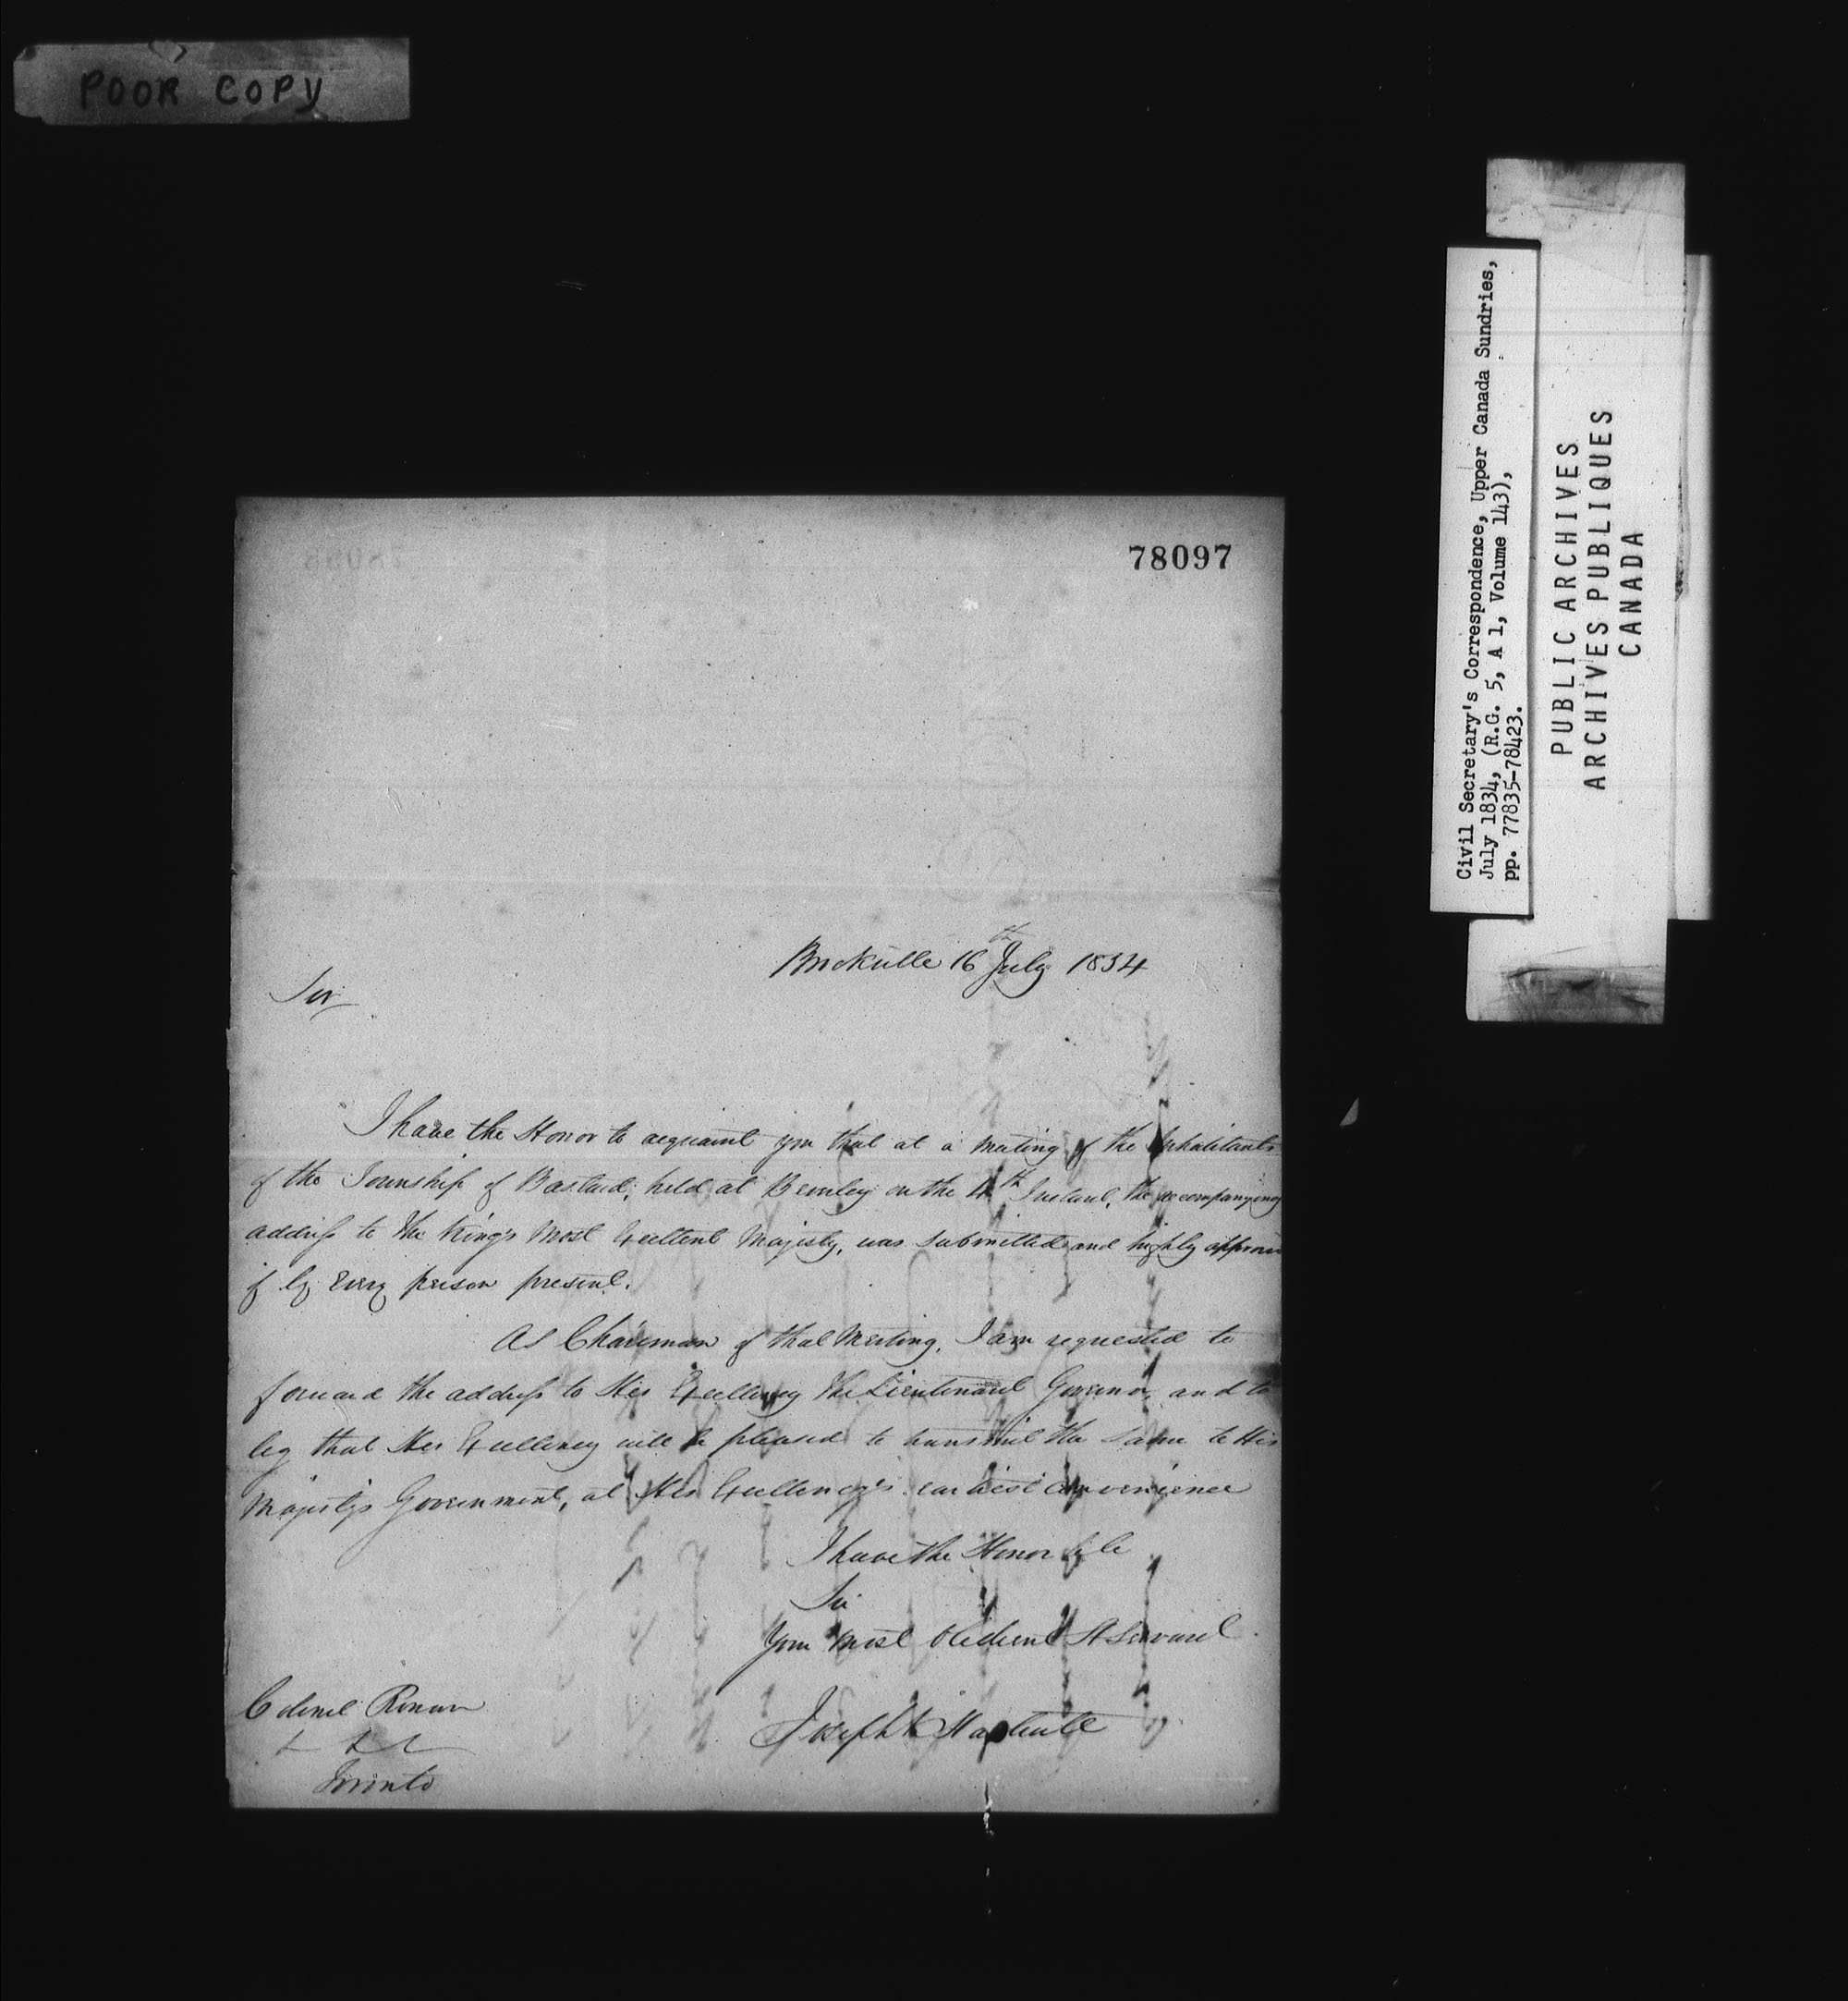 POOR COPY
78097
Brockville 16th July 1834
Sir
I have the Honor to acquaint you that at a meeting of the Inhabitants
of the Township of Bastard, held at Beverley on the 4th Instant, the accompanying
address to the King's Most Excellent Majesty, was submitted and highly approved
of by Every person present.
As Chairman of that Meeting, I am requested to
forward the address to His Excellency the Lieutenant Governor, and to
beg that His Excellency will be pleased to transmit the same to His
Majesty's Government, at His Excellency's earliest convenience
I have the Honor to be
Sir
Your most Obedient St Servant
Joseph K Hartwell
Colonel Rowan
&c &c &c
Toronto
Civil Secretary's Correspondence, Upper Canada Sundries,
July 1834, (R.G. 5, A 1, Volume 143),
pp. 77835-78423.
PUBLIC ARCHIVES
ARCHIVES PUBLIQUES
CANADA